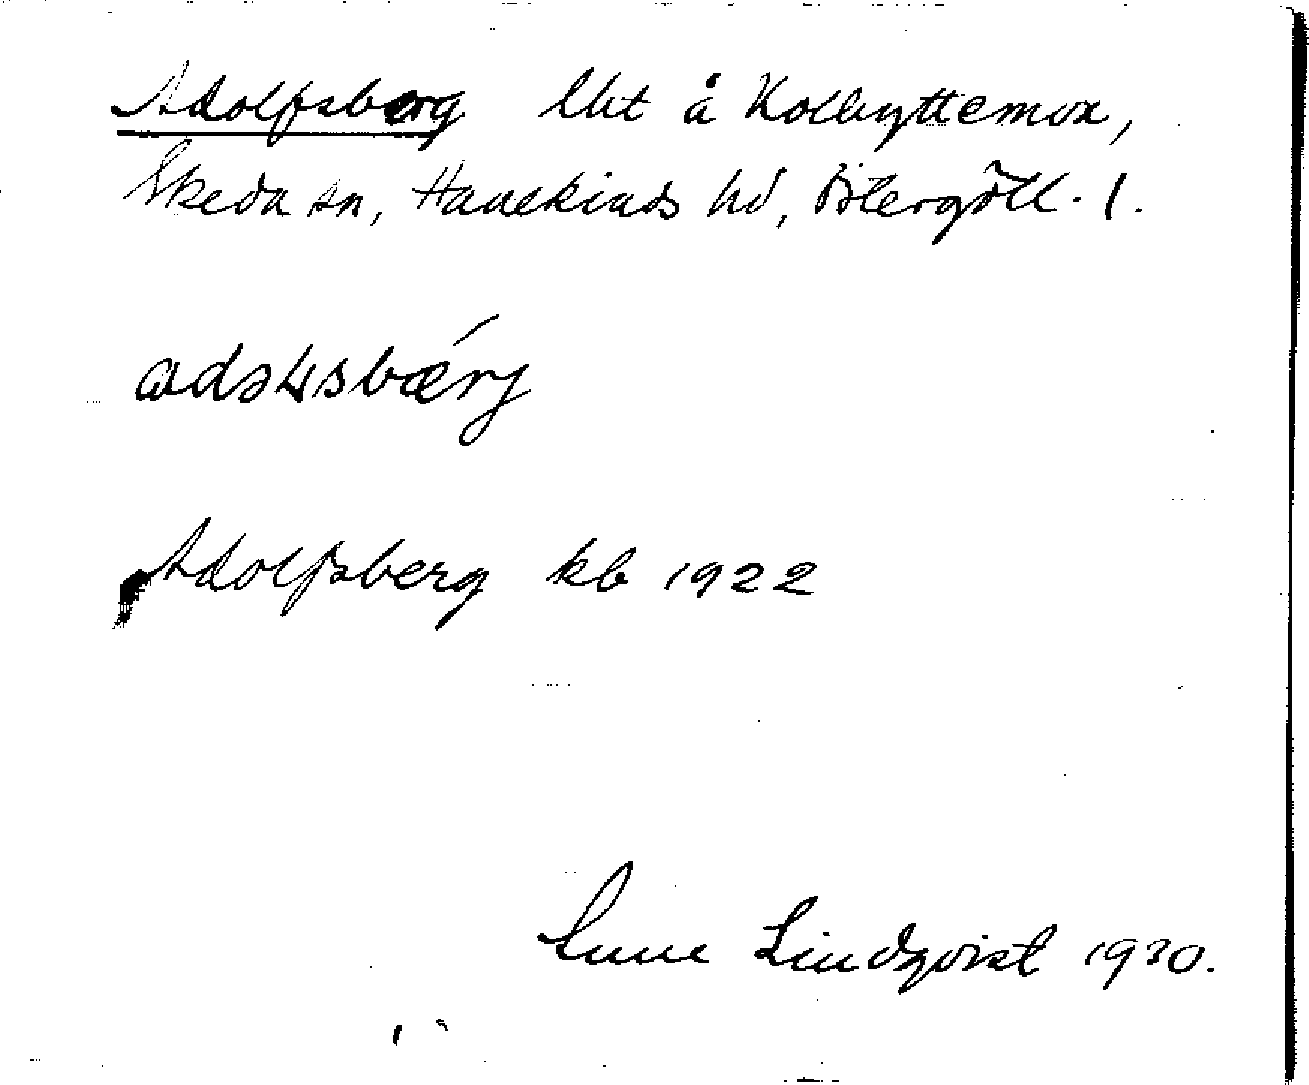 Adolfsberg lht å Kolbyttemon,
Skeda sn, Hanekinds hd, Östergötl. l.
adɔɫsbærj
Adolfsberg kb 1922
Sune Lindqvist 1930.